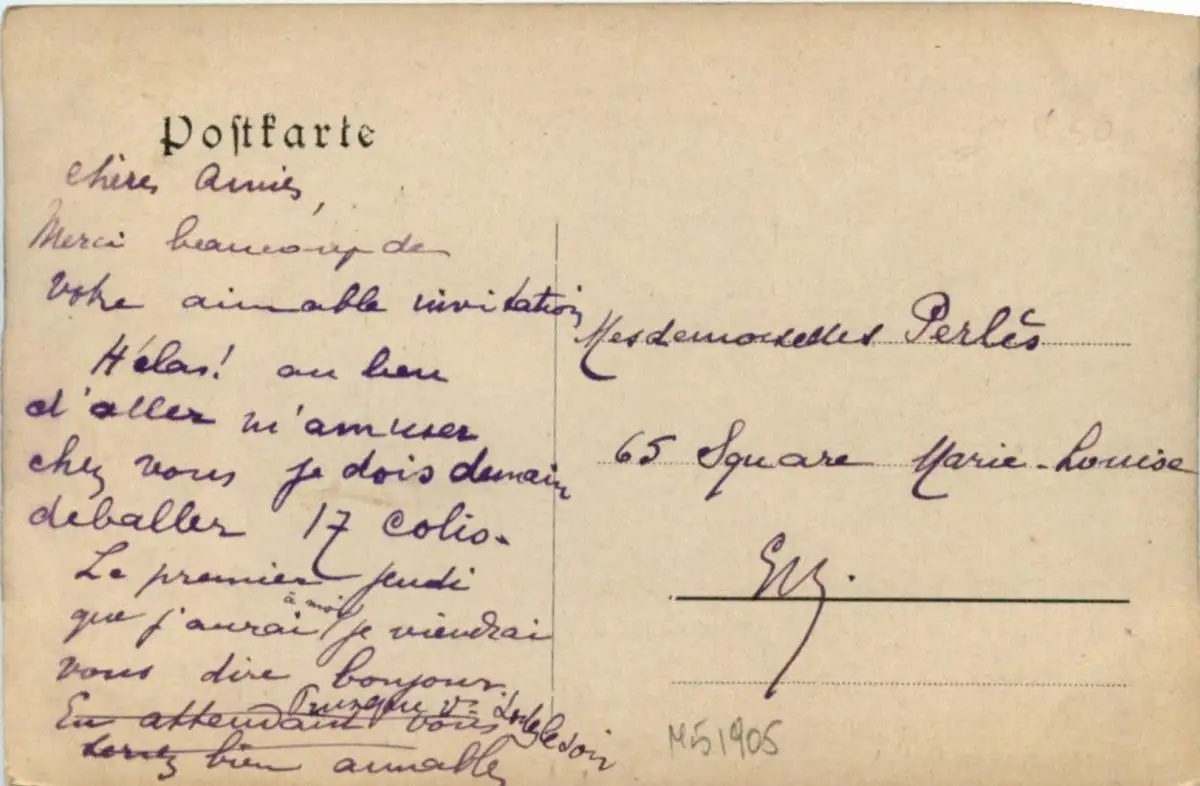 Postkarte
Chères Amies,
Merci beaucoup de
votre aimable invitation
Hélas! au lieu
d'aller m'amuser
chez vous je dois demain
déballer 17 colis.
Le premier jeudi
que j'aurai à moi je viendrai
vous dire bonjour.
Puisque v=
le soir
En attendant vous
serez bien aimables
Mesdemoiselles Perlès
65 Square Marie-Louise
E/V.
M51905